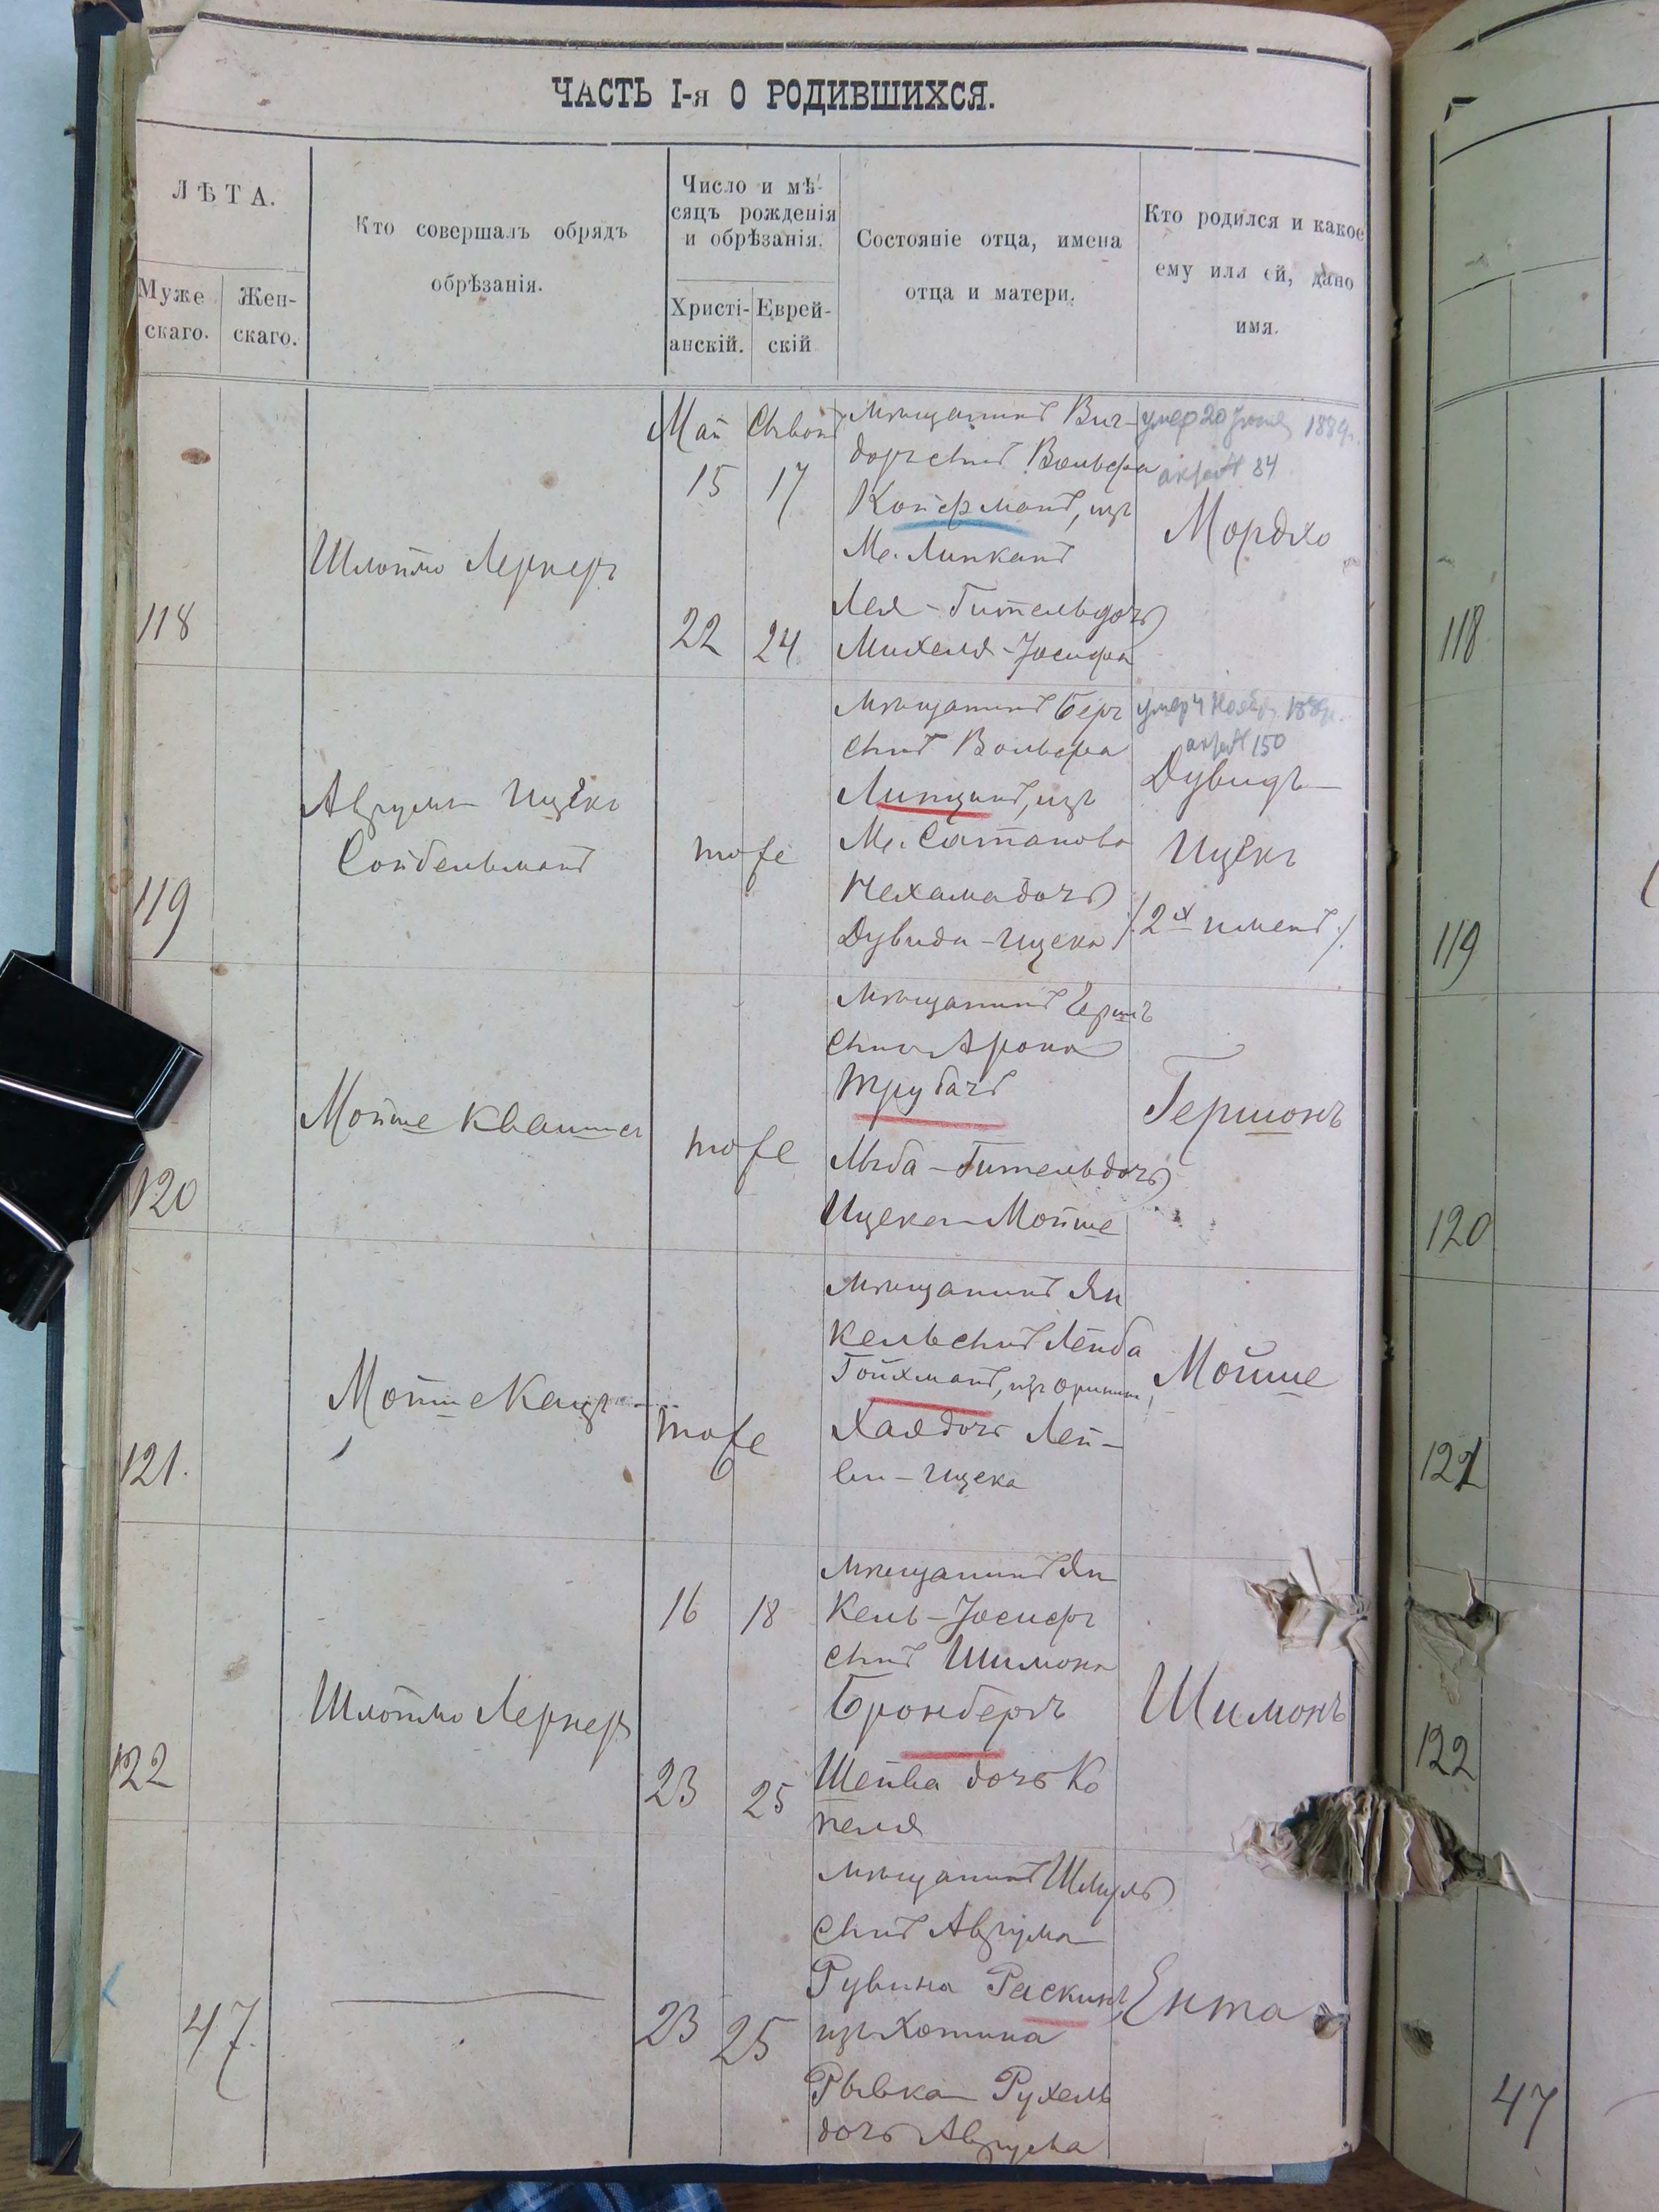 ЧАСТЬ I-я О РОДИВШИХСЯ.
ЛѢТА.
Муже
скаго.
Жен-
скаго.
Кто совершалъ обрядъ
обрѣзанія.
Число и мѣ-
сяцъ рожденія
и обрѣзанія.
Христі-
анскій.
Еврей-
скій
Состояніе отца, имена
отца и матери.
Кто родился и какое
ему или ей, дано
имя.
118
Шлоймо Лернеръ
Май
15
22
17
24
Мѣщанинъ Виг-
доръ сынъ Вольфа
Койфманъ, изъ
М. Липканъ
Лея-Гитель дочь
Михеля-Іосифа
умер 20 1889г.
84
Мордхо
119
Аврумъ Ицекъ
Сойбельманъ
тоже
Мѣщанинъ Беръ
сынъ Вольфа
Липцинъ, изъ
М. Сатанова
Нехама дочь
Дувида-Ицека
умер 4 Ноябр.
150
Дувидъ
Ицекъ
/2х именъ/
120
Мойше Квашна
тоже
Мѣщанинъ Гершъ
сынъ Арона
Трубачъ
Лыба-Гитель дочь
Ицека-Мойше
Гершонъ
121.
Мойше Кацъ
тоже
Мѣщанинъ Ян
кель сынъ Лейба
Гойхманъ, изъ
Хая дочь Лей-
ви-Ицека
Мойше
122
Шлоймо Лернеръ
16
23
18
25
Мѣщанинъ Ян
кель-Іосифъ
сынъ Шимона
Бронбергъ
Шейва дочь Ко
пеля
Шимонъ
47.
23
25
Мѣщанинъ Шмуль
сынъ Аврума
Рувина Раскинъ
изъ Хотина
Рывка Рухель
дочь Аврума
Ента
118
119
120
121
122
47